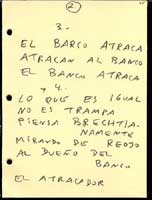 2
3-
EL BARCO ATRACA
ATRACAN AL BANCO
EL BANCO ATRACA
Y 4.
LO QUE ES IGUAL
NO ES TRAMPA
PIENSA BRECHTIA-
NAMENTE
MIRANDO DE REOJO
AL DUEÑO DEL
BANCO
EL ATRACADOR